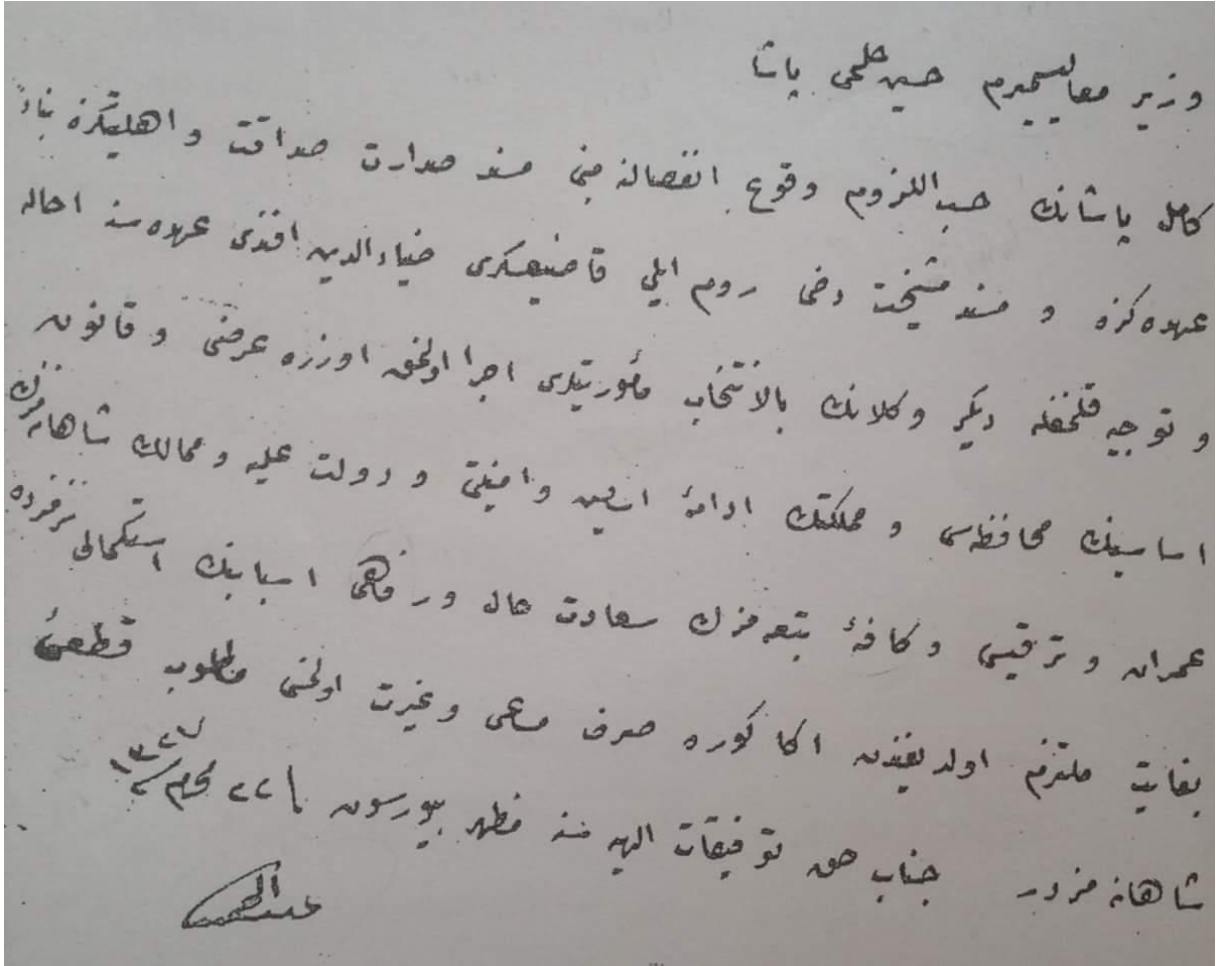 وزیر معالیسمیرم حسین حلمی پاشا
کامل پاشانك حسب اللزوم وقوع انفصالنه مبنی مسند صدارت صداقت و اهلیتكزه بناءً
عهده كزه و مسند مشیخت دخی روم ایلی قاضیعسكری ضیاءالدین افندی عهده سنه احاله
و توجیه قلنمغله دیكر وكلانك بالانتخاب مأموریتلری اجرا اولنمق اوزره عرضی و قانون
اساسینك محافظه سی و مملكتك ادامهٔ اسایش و امنیتی و دولت علیه و ممالك شاهانه مزك
عمران و ترقیسی و كافهٔ تبعه مزك سعادت حال و رفاهی اسبابنك استكمالی نزدمزده
بغایت ملتزم اولدیغندن اكا كوره صرف مساعی و غیرت اولنمسی مطلوب قطعیٔ
شاهانه مزدر جناب حق توفیقات الهیه سنه مظهر بیورسون فی ۲۲ محرم سنه ۱۳۲۷
عبدالحمید